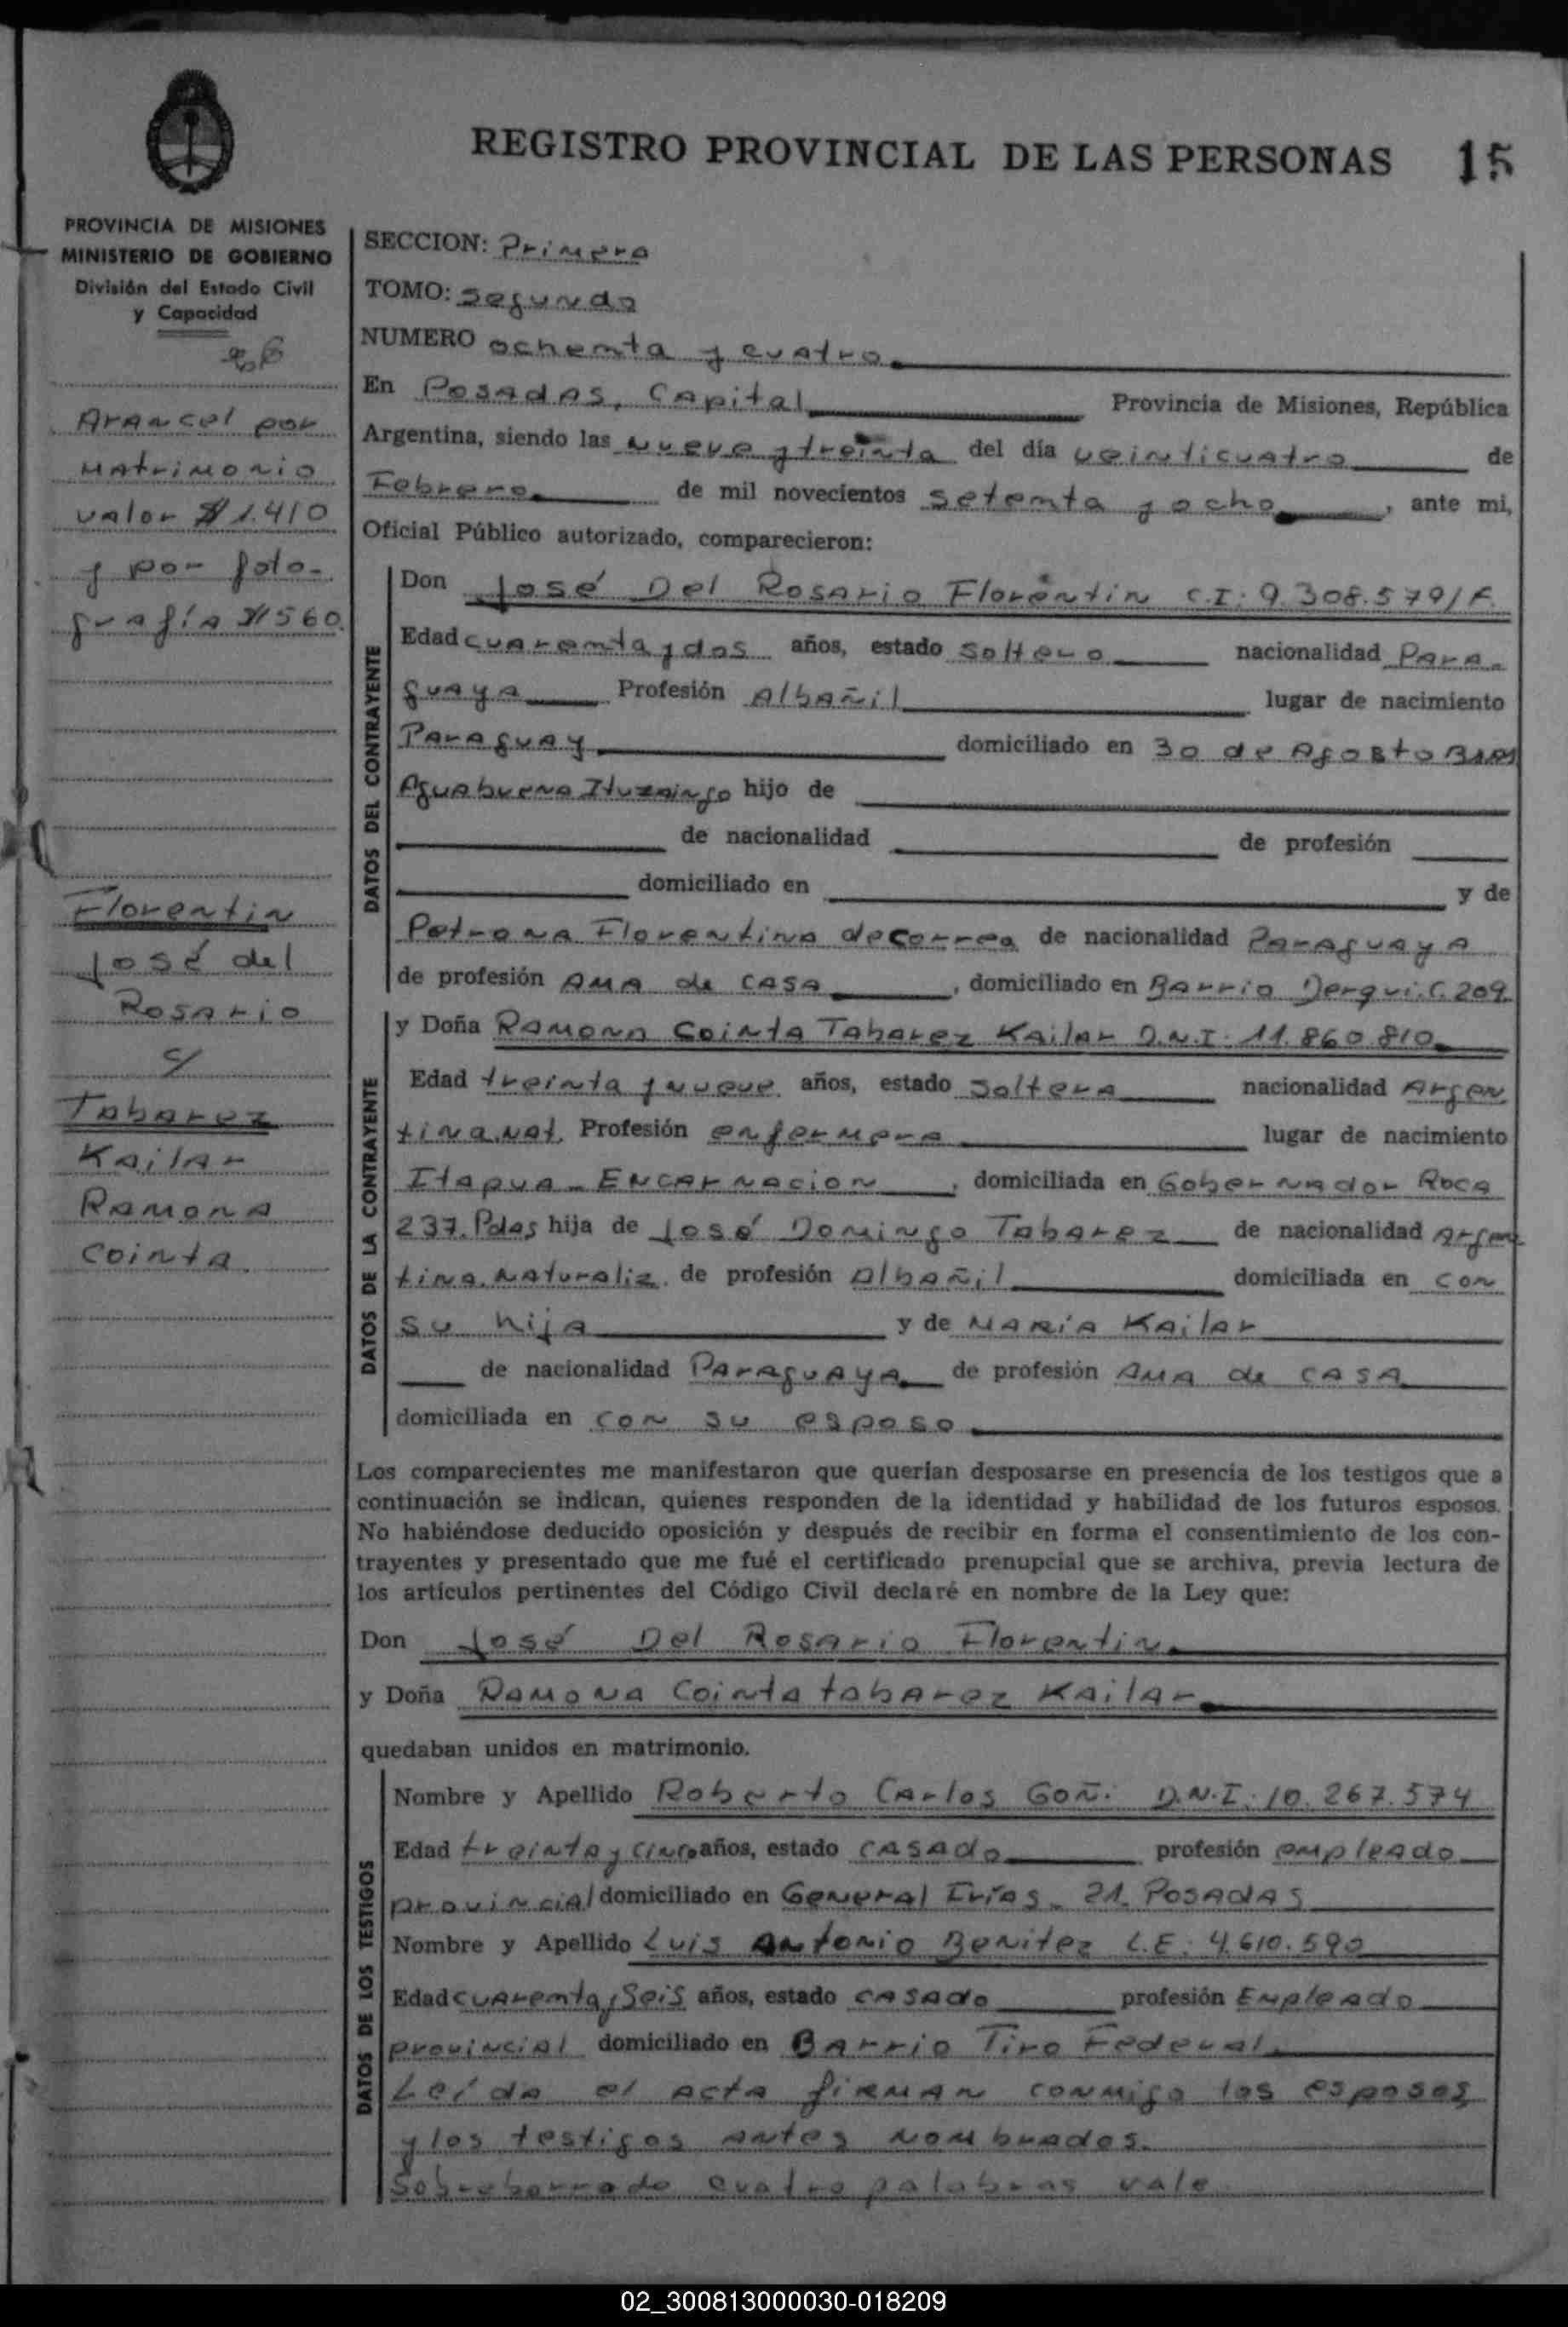 REGISTRO PROVINCIAL DE LAS PERSONAS 15
PROVINCIA DE MISIONES
MINISTERIO DE GOBIERNO
División del Estado Civil
y Capacidad
Arancel por
Matrimonio
valor $ 1.410
y por foto-
grafía $ 560
Florentin
José del
Rosario
c/
Tabarez
Kailar
Ramona
Cointa.
SECCION: Primera
TOMO: Segundo
NUMERO ochenta y cuatro
En Posadas, Capital Provincia de Misiones, República
Argentina, siendo las nueve y treinta del día veinticuatro de
Febrero de mil novecientos setenta y ocho, ante mi,
Oficial Público autorizado, comparecieron:
DATOS DEL CONTRAYENTE
Don José Del Rosario Florentin C.I: 9.308.579/F.
Edad cuarenta y dos años, estado soltero nacionalidad Para-
guaya Profesión Albañil lugar de nacimiento
Paraguay domiciliado en 30 de Agosto
Aguabuena Ituzaingo hijo de
de nacionalidad de profesión
domiciliado en y de
Petrona Florentina de Correa de nacionalidad Paraguaya
de profesión AMA de CASA, domiciliado en Barrio Derqui. C. 209.
DATOS DE LA CONTRAYENTE
y Doña Ramona Cointa Tabarez Kailar D.N.I. 11.860.810
Edad treinta y nueve años, estado Soltera nacionalidad Argen
tina.nat. Profesión enfermera lugar de nacimiento
Itapua - ENCARNACION, domiciliada en Gobernador Roca
237. Pdas hija de José Domingo Tabarez de nacionalidad Argen
tina.Naturaliz. de profesión Albañil domiciliada en con
su hija y de MARÍA Kailar
de nacionalidad Paraguaya de profesión AMA de CASA
domiciliada en con su esposo
Los comparecientes me manifestaron que querían desposarse en presencia de los testigos que a
continuación se indican, quienes responden de la identidad y habilidad de los futuros esposos.
No habiéndose deducido oposición y después de recibir en forma el consentimiento de los con-
trayentes y presentado que me fué el certificado prenupcial que se archiva, previa lectura de
los artículos pertinentes del Código Civil declaré en nombre de la Ley que:
Don José Del Rosario Florentin
y Doña Ramona Cointa tabarez Kailar
quedaban unidos en matrimonio.
DATOS DE LOS TESTIGOS
Nombre y Apellido Roberto Carlos Goñi D.N.I. 10.267.574
Edad treinta y cinco años, estado CASADO profesión empleado
provincial domiciliado en General Frías - 21. POSADAS
Nombre y Apellido Luis Antonio Benitez L.E. 4.610.590
Edad cuarenta y Seis años, estado CASADO profesión Empleado
provincial domiciliado en Barrio Tiro Federal.
Leída el acta firman conmigo los esposos
y los testigos antes nombrados.
Sobreborrado cuatro palabras vale
02_300813000030-018209